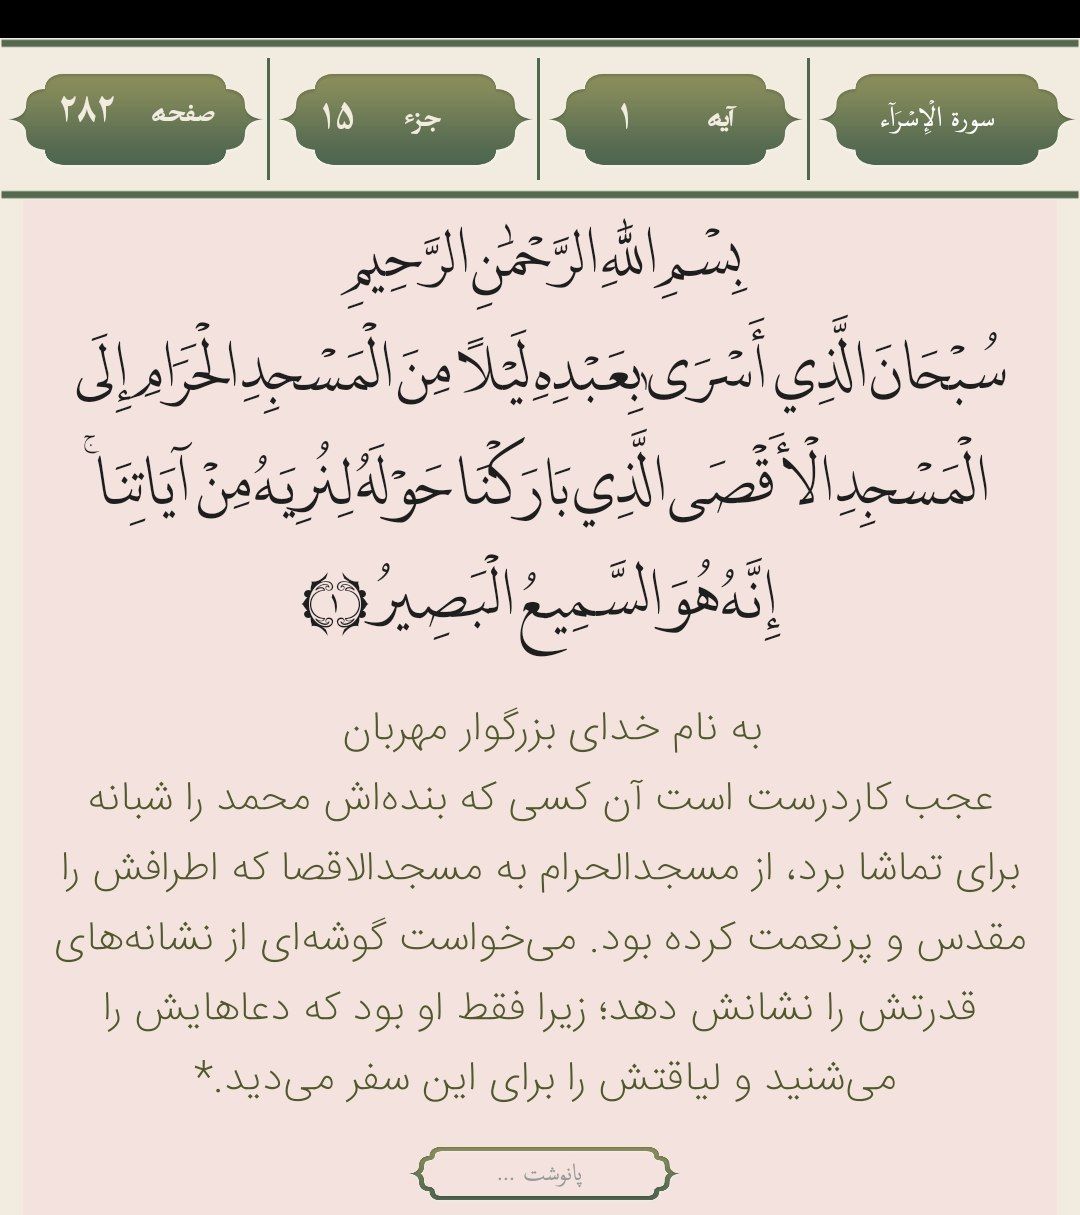 سورة الْإِسْرَآء
آیه ۱
جزء ۱۵
صفحه ۲۸۲
بِسْمِ اللَّهِ الرَّحْمَٰنِ الرَّحِيمِ
سُبْحَانَ الَّذِي أَسْرَىٰ بِعَبْدِهِ لَيْلًا مِنَ الْمَسْجِدِ الْحَرَامِ إِلَى
الْمَسْجِدِ الْأَقْصَى الَّذِي بَارَكْنَا حَوْلَهُ لِنُرِيَهُ مِنْ آيَاتِنَا ۚ
إِنَّهُ هُوَ السَّمِيعُ الْبَصِيرُ ﴿١﴾
به نام خدای بزرگوار مهربان
عجب کاردرست است آن کسی که بنده‌اش محمد را شبانه
برای تماشا برد، از مسجدالحرام به مسجدالاقصا که اطرافش را
مقدس و پرنعمت کرده بود. می‌خواست گوشه‌ای از نشانه‌های
قدرتش را نشانش دهد؛ زیرا فقط او بود که دعاهایش را
می‌شنید و لیاقتش را برای این سفر می‌دید.*
پانوشت ...